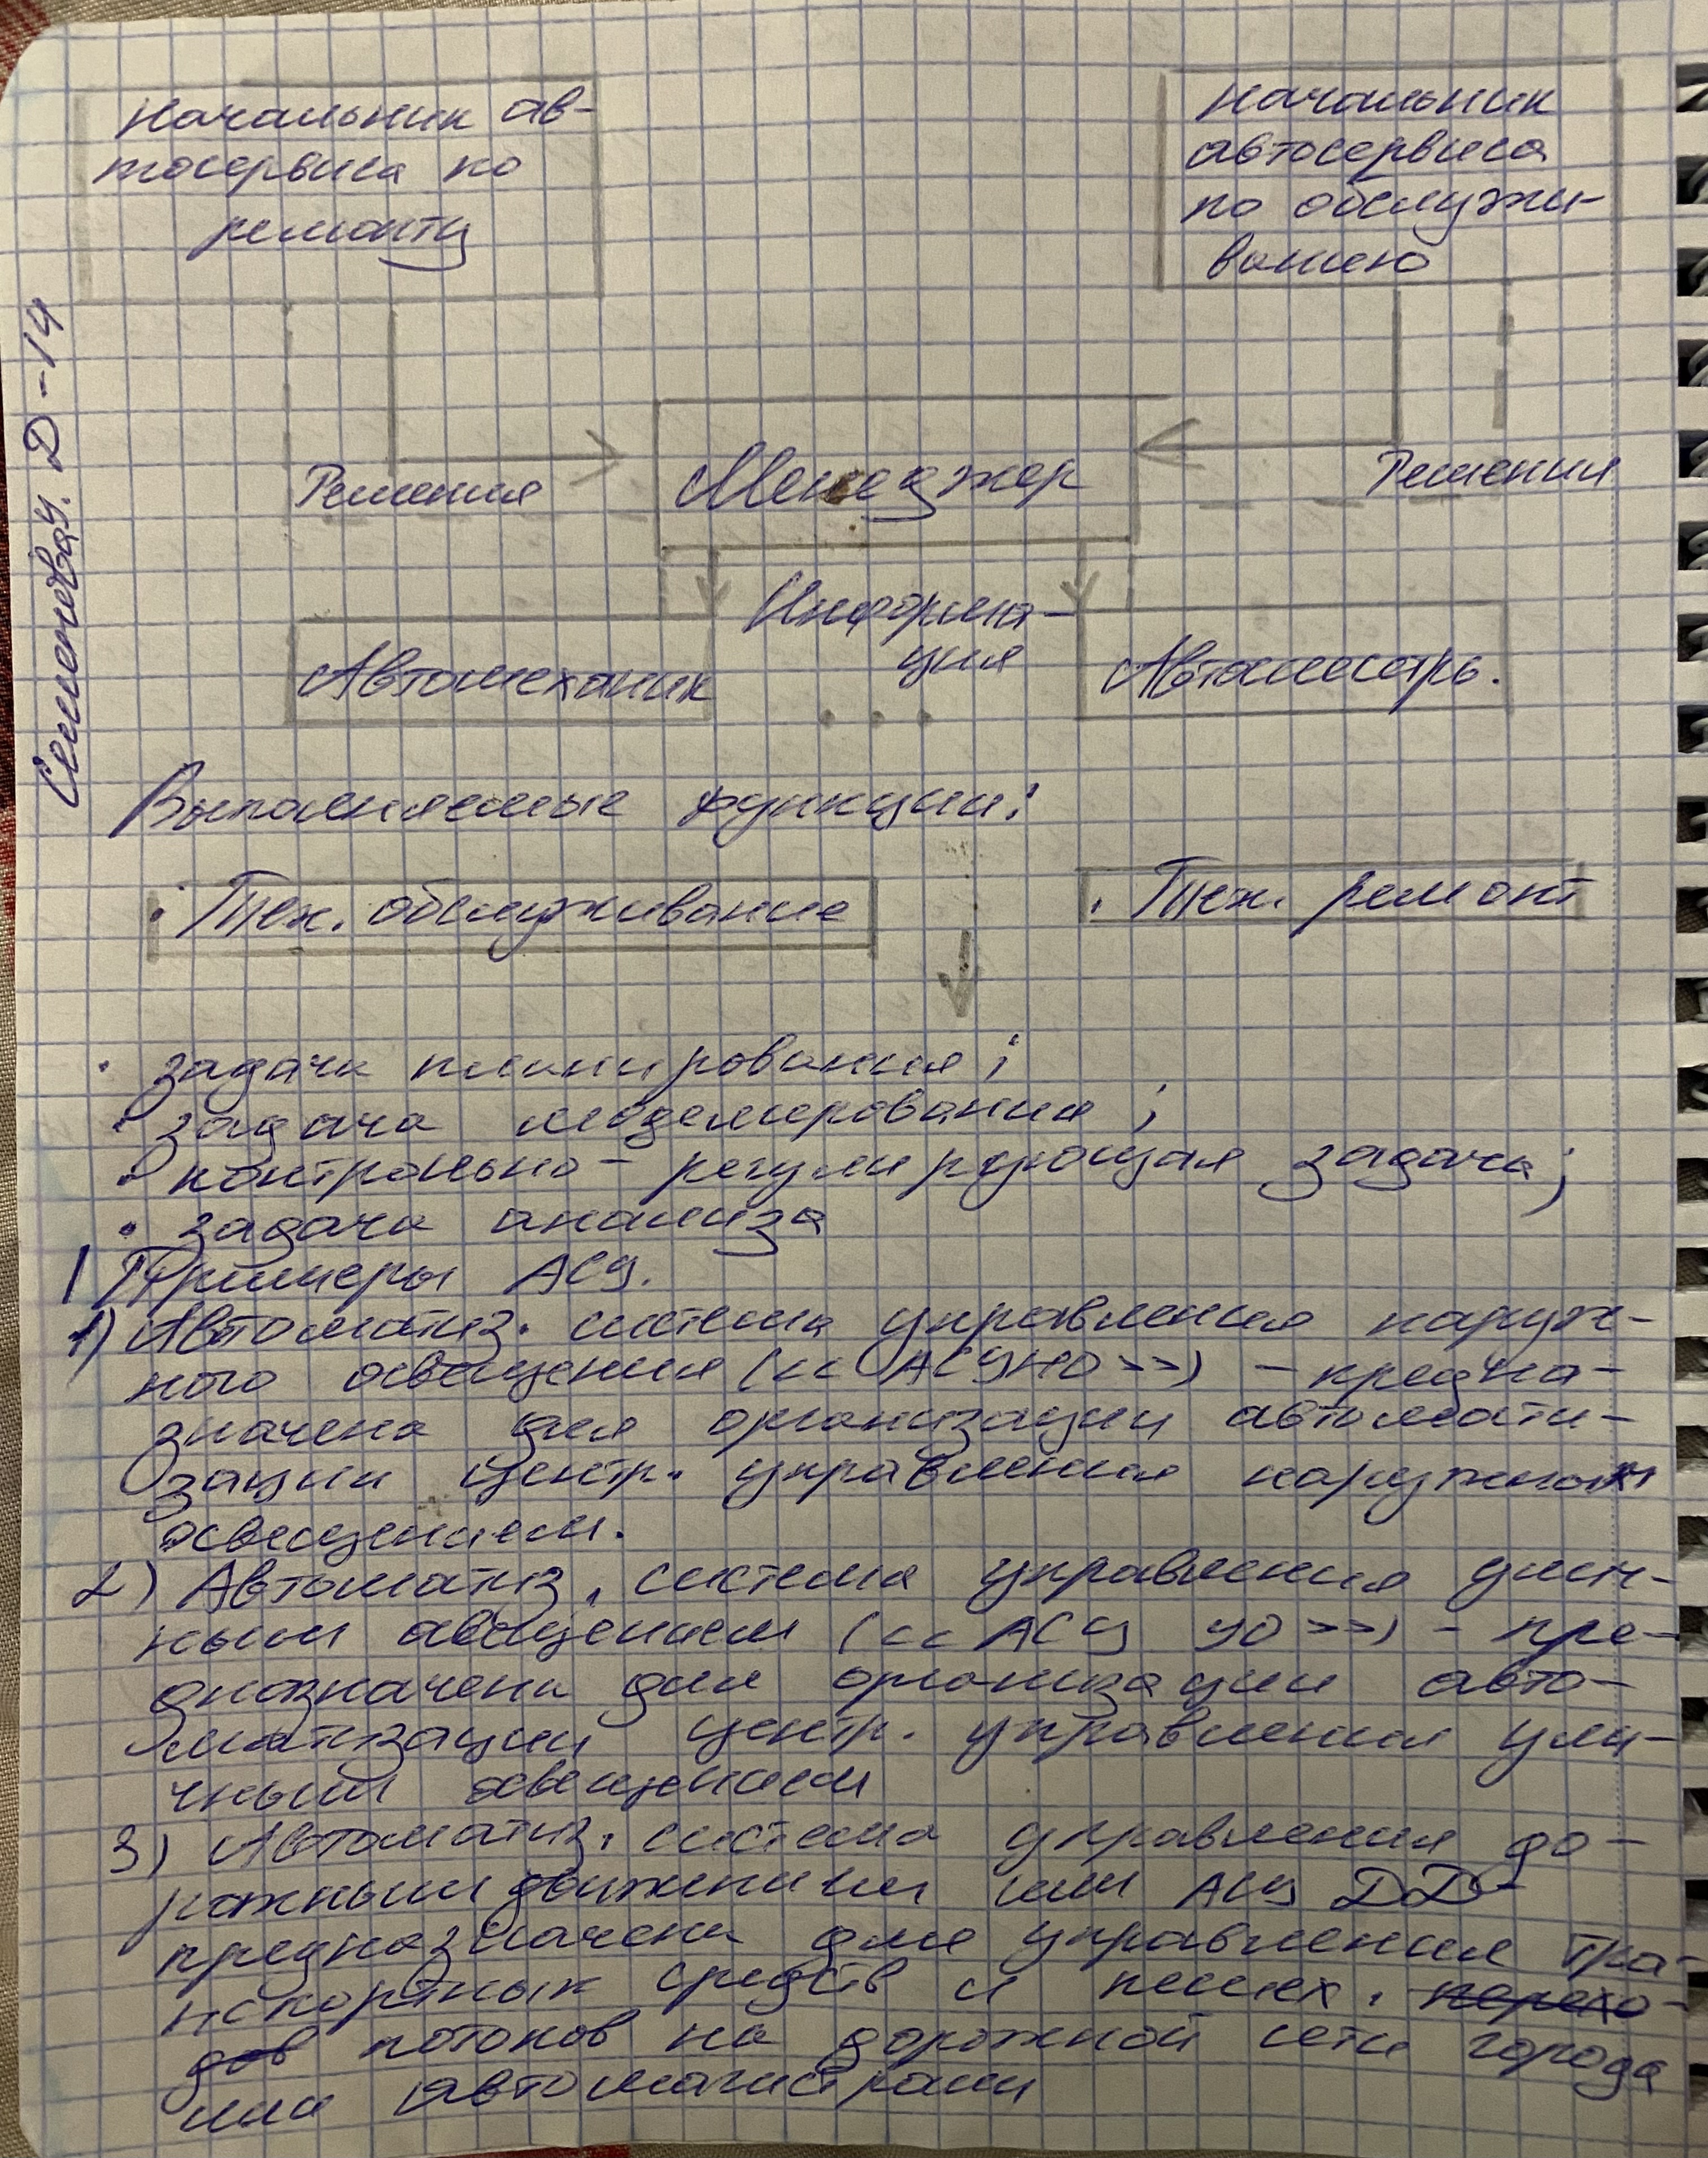 Начальник ав-
тосервиса по
ремонту
Начальник
автосервиса
по обслужи-
ванию
Д-14
Решения
Менеджер
Решения
Информа-
ция
Автомеханик
Автослесарь.
Выполняемые функции:
· Тех. обслуживание
· Тех. ремонт
· задача планирования;
· задача моделирования;
· контрольно-регулирующая задача;
· задача анализа
Примеры АСУ.
1) Автоматиз. система управления наруж-
ного освещения (<< АСУНО >>) - предна-
значена для организации автомати-
зации центр. управления наружным
освещением.
2) Автоматиз. система управления улич-
ным освещением (<< АСУ УО >>) - пре-
дназначена для организации авто-
матизации центр. управления ули-
чным освещением
3) Автоматиз. система управления до-
рожным движением или АСУ ДД-
предназначена для управления тра-
нспортных средств и пешех. перехо-
дов потоков на дорожной сети города
или автомагистрали